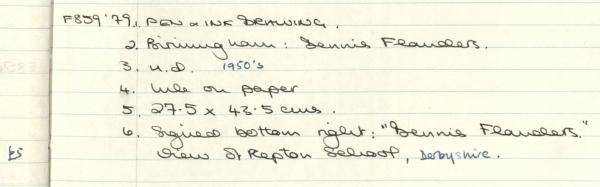 F859'79. 1. PEN & INK DRAWING.
2. Birmingham: Dennis Flanders.
3. n.d. 1950's
4. Ink on paper
5. 27.5 x 43.5 cms.
6. Signed bottom right: "Dennis Flanders."
View of Repton School, Derbyshire.